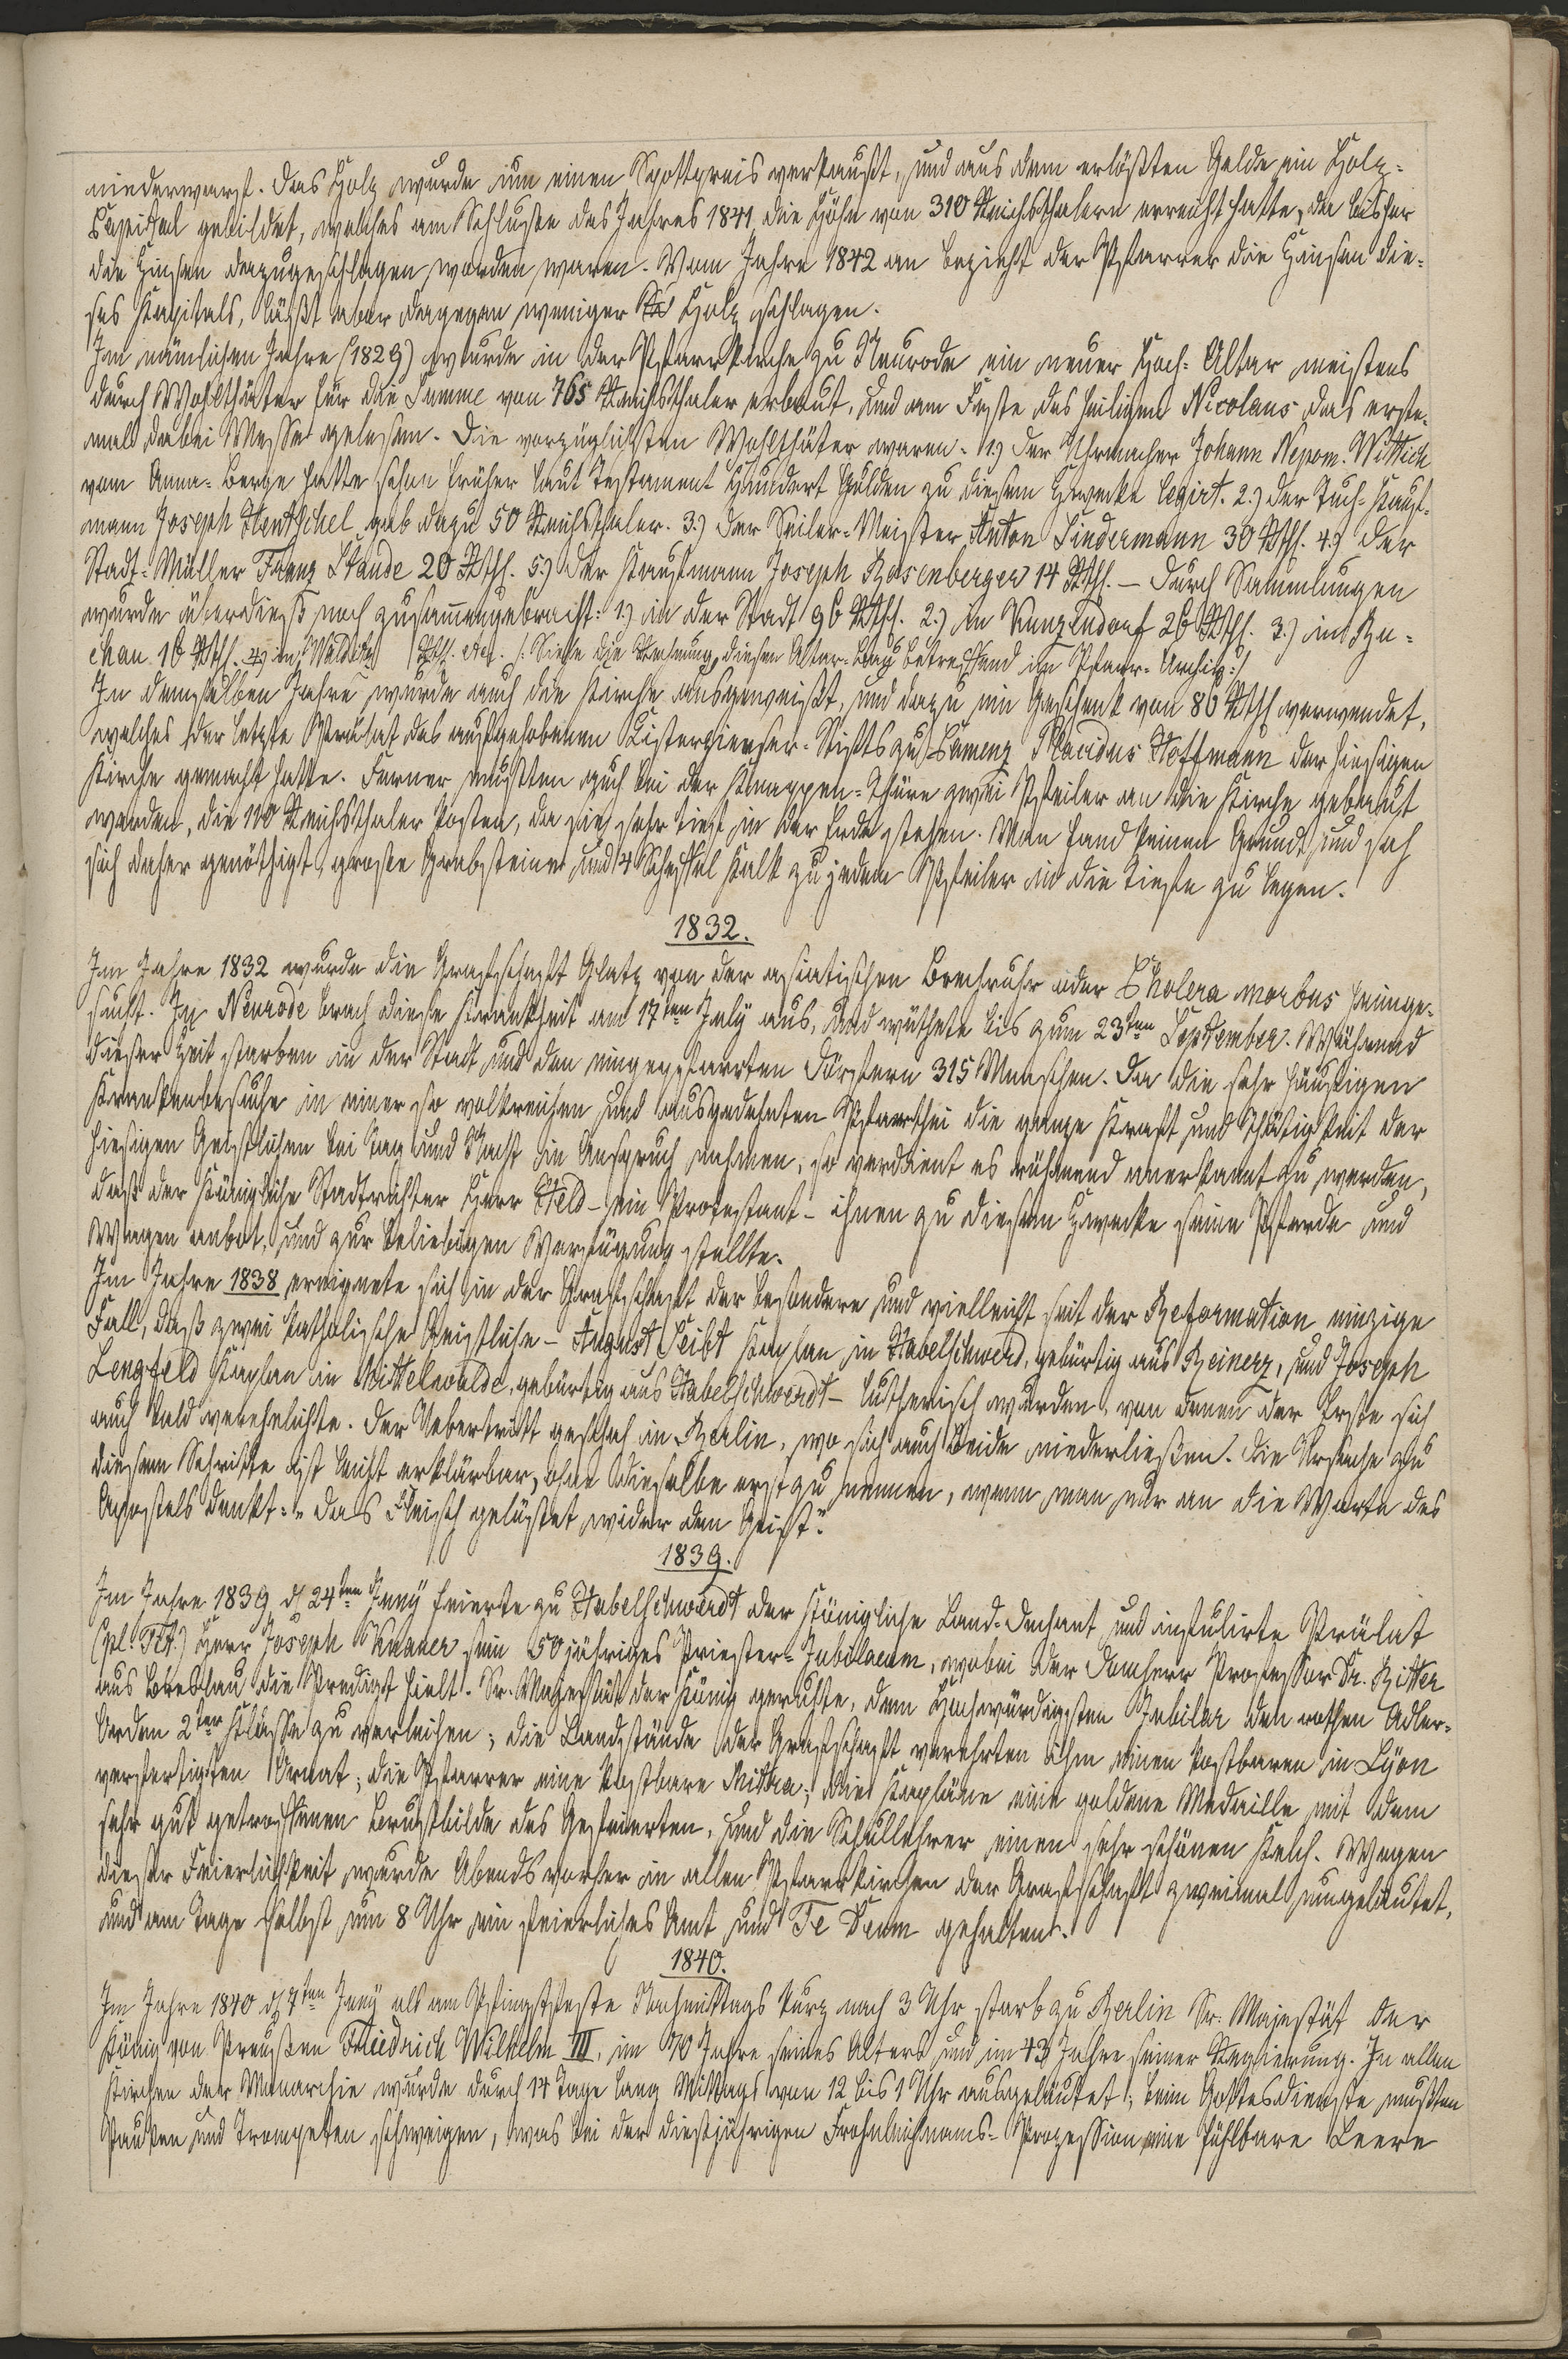 niederwarf. Das Holz wurde um einen Spottpreis verkauft, und aus dem erlößten Gelde ein Holz-
Capital gebildet, welches am Schluße des Jahres 1841 die Höhe von 310 Reichsthalern erreicht hatte, da bisher
die Zinsen dazugeschlagen worden waren. Vom Jahre 1842 an bezieht der Pfarrer die Zinsen die-
ses Kapitals, läßt aber dagegen weniger Holz schlagen.
Im nämlichen Jahre (1829) wurde in der Pfarrkirche zu Neurode ein neuer Hoch-Altar meistens
durch Wohlthäter für die Summe von 765 Reichsthaler erbaut, und am Feste des heiligen Nicolaus das erste-
mal dabei Messe gelesen. Die vorzüglichsten Wohlthäter waren: 1.) Der Uhrmacher Johann Nepom. Wittich
vom Anna-Berge hatte schon früher laut Testament Hundert Gulden zu diesem Zwecke legirt. 2.) Der Tuch-Kauf-
mann Joseph Hentschel gab dazu 50 Reichsthaler. 3.) Der Seiler-Meister Anton Lindermann 30 Rthl. 4.) Der
Stadt-Müller Franz Staude 20 Rthl. 5.) Der Kaufmann Joseph Rosenberger 14 Rthl. – Durch Sammlungen
wurde überdieß noch zusam̄engebracht: 1.) in der Stadt 96 Rthl. 2.) in Kunzendorf 26 Rthl. 3.) in Bu-
chau 16 Rthl. 4.) in Walditz Rthl. etc. /: Siehe die Rechnung, diesen Altar-Bau betreffend im Pfarr-Archiv :/
In demselben Jahre wurde auch die Kirche ausgeweißt, und dazu ein Geschenk von 80 Rthl verwendet,
welches der letzte Prälat des aufgehobenen Cisterzienser-Stifts zu Camenz Placidus Hoffmann der hiesigen
Kirche gemacht hatte. Ferner mußten auch bei der Knappen-Thüre zwei Pfeiler an die Kirche gebaut
werden, die 110 Reichsthaler kosten, da sie sehr tief in der Erde stehen. Man fand keinen Grund, und sah
sich daher genöthigt, große Grabsteine und 4 Scheffel Kalk zu jedem Pfeiler in die Tiefe zu legen.
1832.
Im Jahre 1832 wurde die Grafschaft Glatz von der asiatischen Brechruhr oder Cholera morbus heimge-
sucht. In Neurode brach diese Krankheit am 17ten July aus, und wüthete bis zum 23ten September. Während
dieser Zeit starben in der Stadt und den eingepfarrten Dörfern 315 Menschen. Da die sehr häufigen
Krankenbesuche in einer so volkreichen und ausgedehnten Pfarrthei die ganze Kraft und Thätigkeit der
hiesigen Geistlichen bei Tag und Nacht in Anspruch nahmen, so verdient es rühmend anerkannt zu werden,
daß der Königliche Stadtrichter Herr Held – ein Protestant – ihnen zu diesem Zwecke seine Pferde und
Wagen anbot, und zur beliebigen Verfügung stellte.
Im Jahre 1838 ereignete sich in der Grafschaft der besondere und vielleicht seit der Reformation einzige
Fall, daß zwei katholische Geistliche – August Seibt Kaplan in Habelschwerd, gebürtig aus Reinerz, und Joseph
Lengfeld Kaplan in Mittelwalde, gebürtig aus Habelschwerdt – lutherisch wurden, von denen der Erste sich
auch bald verehelichte. Der Uebertritt geschah in Berlin, wo sich auch Beide niederließen. Die Ursache zu
diesem Schritte ist leicht erklärbar, ohne dieselbe erst zu nennen, wenn man nur an die Worte des
Apostels denkt: „das Fleisch gelüstet wider den Geist."
1839.
Im Jahre 1839 d 24ten Juny feierte zu Habelschwerdt der Königliche Land-Dechant und infulirte Prälat
(pl. Tit.) Herr Joseph Knauer sein 50 jähriges Priester-Jubilaeum, wobei der Domherr Professor Dr. Ritter
aus Breslau die Predigt hielt. Sr. Majestät der König geruhte, dem Hochwürdigsten Jubilar den rothen Adler-
Orden 2ter Klasse zu verleihen; die Landstände der Grafschaft verehrten ihm einen kostbaren in Lÿon
verfertigten Ornat; die Pfarrer eine kostbare Mitra; die Kapläne eine goldene Medaille mit dem
sehr gut getroffenen Brustbilde des Gefeierten, und die Schullehrer einen sehr schönen Kelch. Wegen
dieser Feierlichkeit wurde Abends vorher in allen Pfarrkirchen der Grafschaft zweimal eingeläutet,
und am Tage selbst um 8 Uhr ein feierliches Amt und Te Deum gehalten.
1840.
Im Jahre 1840 d 7ten Juny als am Pfingstfeste Nachmittags kurz nach 3 Uhr starb zu Berlin Sr. Majestät der
König von Preußen Friedrich Wilhelm III, im 70 Jahre seines Alters und im 43 Jahre seiner Regierung. In allen
Kirchen der Monarchie wurde durch 14 Tage lang Mittags von 12 bis 1 Uhr ausgeläutet; beim Gottesdienste mußten
Pauken und Trompeten schweigen, was bei der dießjährigen Frohnleichnams-Prozession eine fühlbare Leere